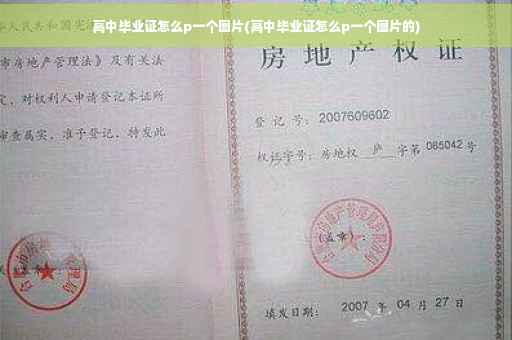 高中毕业证怎么p一个图片(高中毕业证怎么p一个图片的)
华人民共和国宪
市房地产管理法》及有关法
定，对权利人申请登记本证所
审查属实，准予登记，特发此
房地产权证
登记号：2007609602
权证字号：房地权 庐 字第 085042 号
(盖章)：
填发日期： 2007 年 04 月 27 日